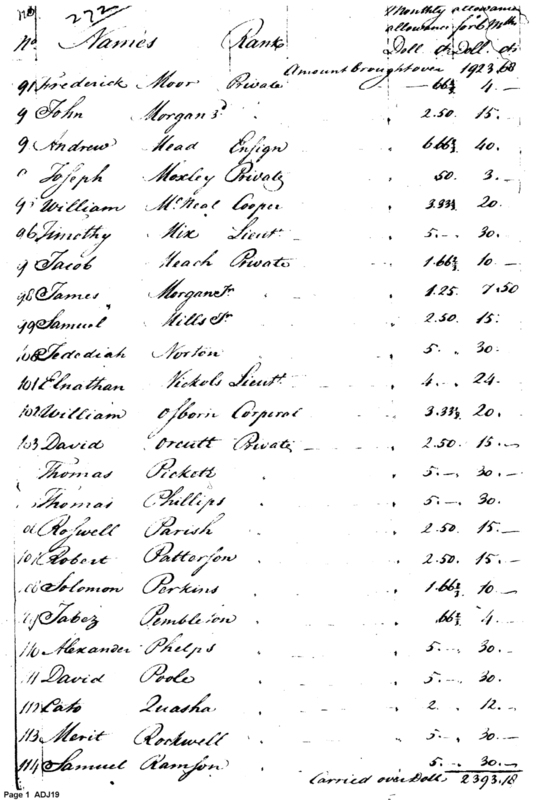 272
No Names Rank Monthly allowance Doll. cts allowance for 6 Mths Doll. cts
Amount brought over 1923.68
91 Frederick Moor Private 66⅔ 4.—
9 John Morgan 3d 2.50 15.—
9 Andrew Mead Ensign 6.66⅔ 40.—
Joseph Moxley Private 50. 3.—
9 William McNeal Cooper 3.33⅓ 20.
96 Timothy Mix Lieut. 5.— 30.—
9 Jacob Meach Private 1.66⅔ 10.—
98 James Morgan Jr. 1.25 7.50
99 Samuel Mills Jr. 2.50 15.
100 Jedediah Norton 5. 30.
101 Elnathan Nickols Lieut. 4. 24.
102 William Osborn Corporal 3.33⅓ 20.
103 David Orcutt Private 2.50 15.—
Thomas Picket 5.— 30.—
Thomas Phillips 5.— 30.
Roswell Parish 2.50 15.—
107 Robert Patterson 2.50 15.—
Solomon Perkins 1.66⅔ 10.—
Jabez Pembleton .66⅔ 4.—
110 Alexander Phelps 5.— 30.—
11 David Poole 5.— 30.
112 Cato Quasha 2. 12.—
113 Merit Rockwell 5.— 30.—
114 Samuel Ramson 5.— 30.—
Carried over Doll. 2393.18
Page 1 ADJ19